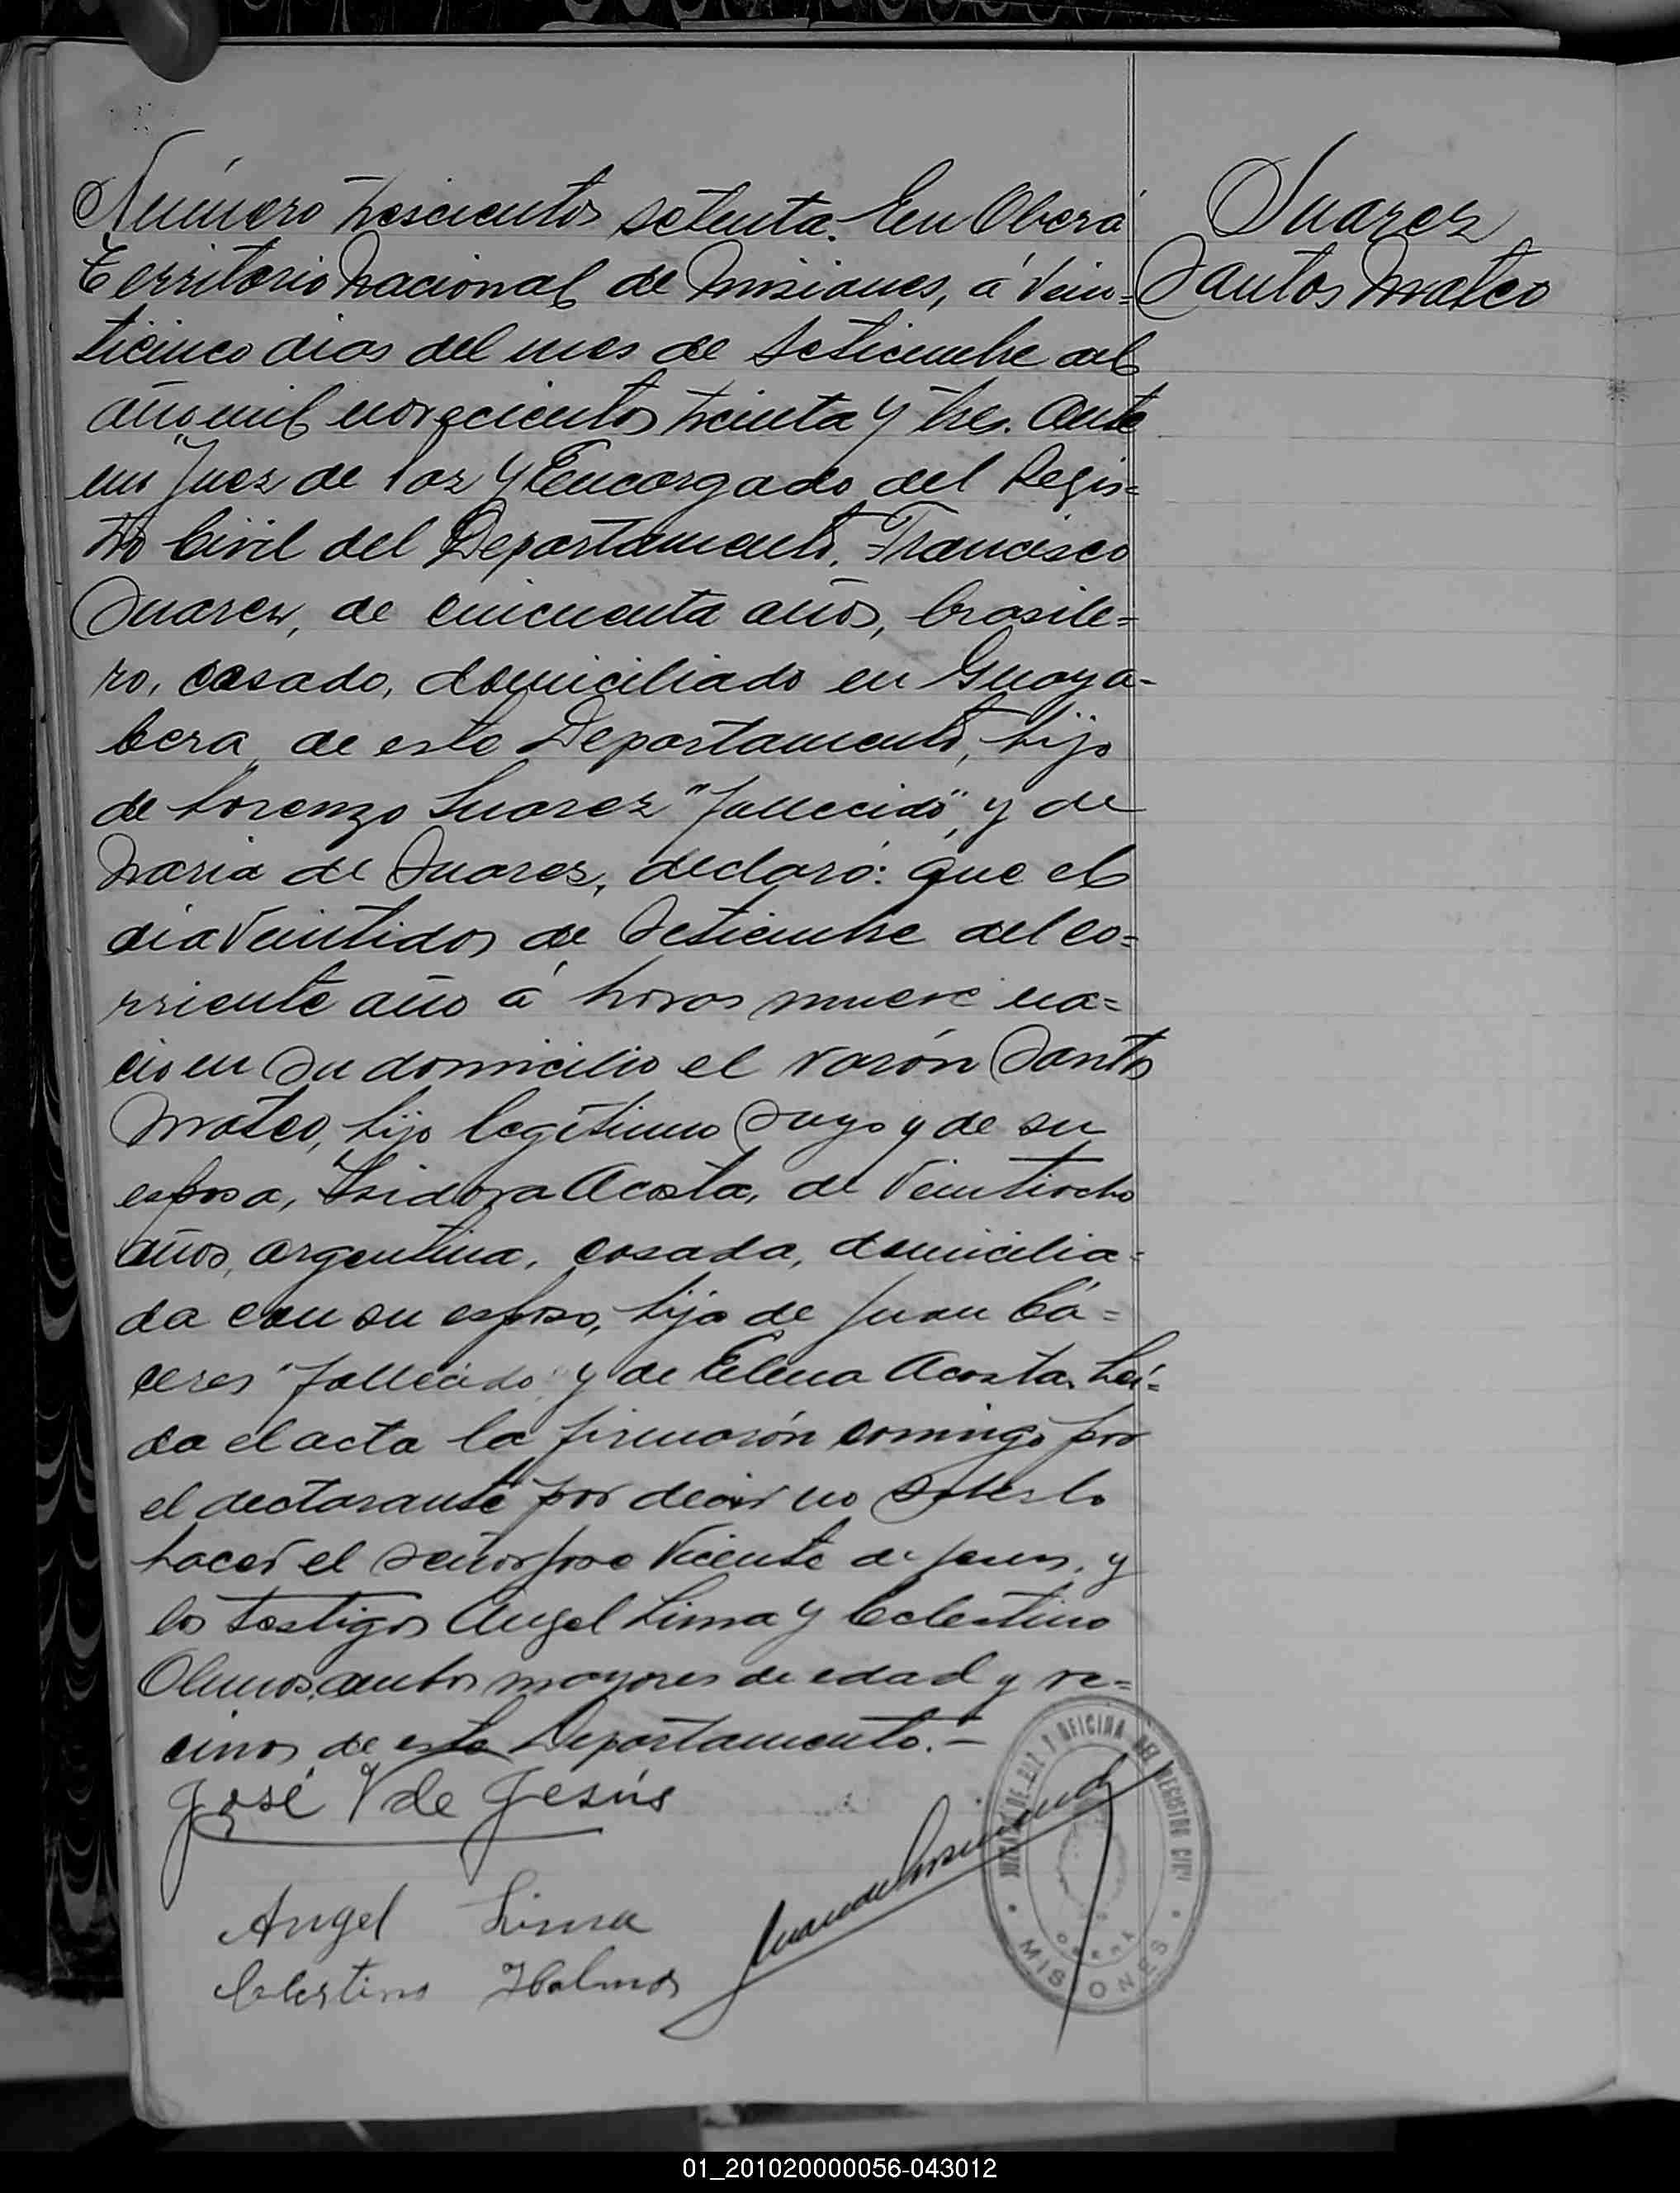 Número trescientos setenta. En Oberá
Territorio Nacional de Misiones, á vein=
ticinco dias del mes de Setiembre del
año mil novecientos treinta y tres. Ante
mi Juez de Paz y Encargado del Regis=
tro Civil del Departamento, Francisco
Suarez, de cincuenta años, brasile=
ro, casado, domiciliado en Guaya-
bera de este Departamento, hijo
de Lorenzo Suarez "fallecido", y de
Maria de Suares, declaró: que el
dia veintidos de Setiembre del co=
rriente año á horas nueve na=
cio en su domicilio el varón Santos
Mateo, hijo legítimo suyo y de su
esposa, Isidora Acosta, de veintiocho
años, argentina, casada, domicilia=
da con su esposo, hija de Juan Cá=
ceres "fallecido" y de Elena Acosta. Leí=
da el acta la firmarón comingo por
el declarante por decir no saberlo
hacer el señor José Vicente de Jesus, y
los testigos Angel Lima y Celestino
Olmos, ambos mayores de edad y ve=
cinos de este Departamento.-
José V de Jesús
Angel Lima
Celestino Holmos
Suarez
Santos Mateo
JUZGADO DE PAZ Y OFICINA DEL REGISTRO CIVIL
OBERÁ
MISIONES
01_201020000056-043012